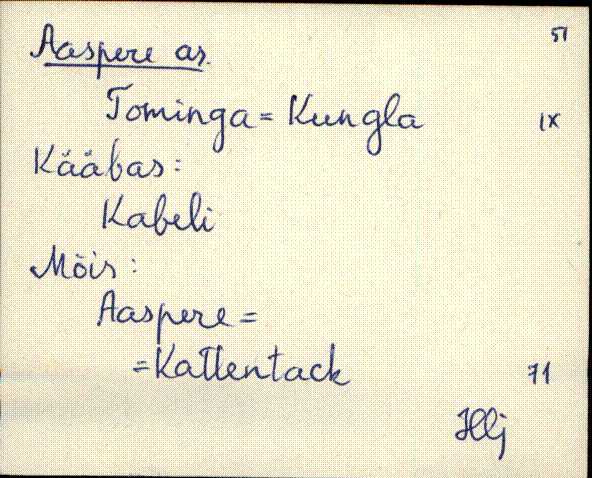 Aaspere as. 51
Tominga = Kungla IX
Kääbas:
Kabeli
Mõis:
Aaspere =
= Kattentack 71
Hlj